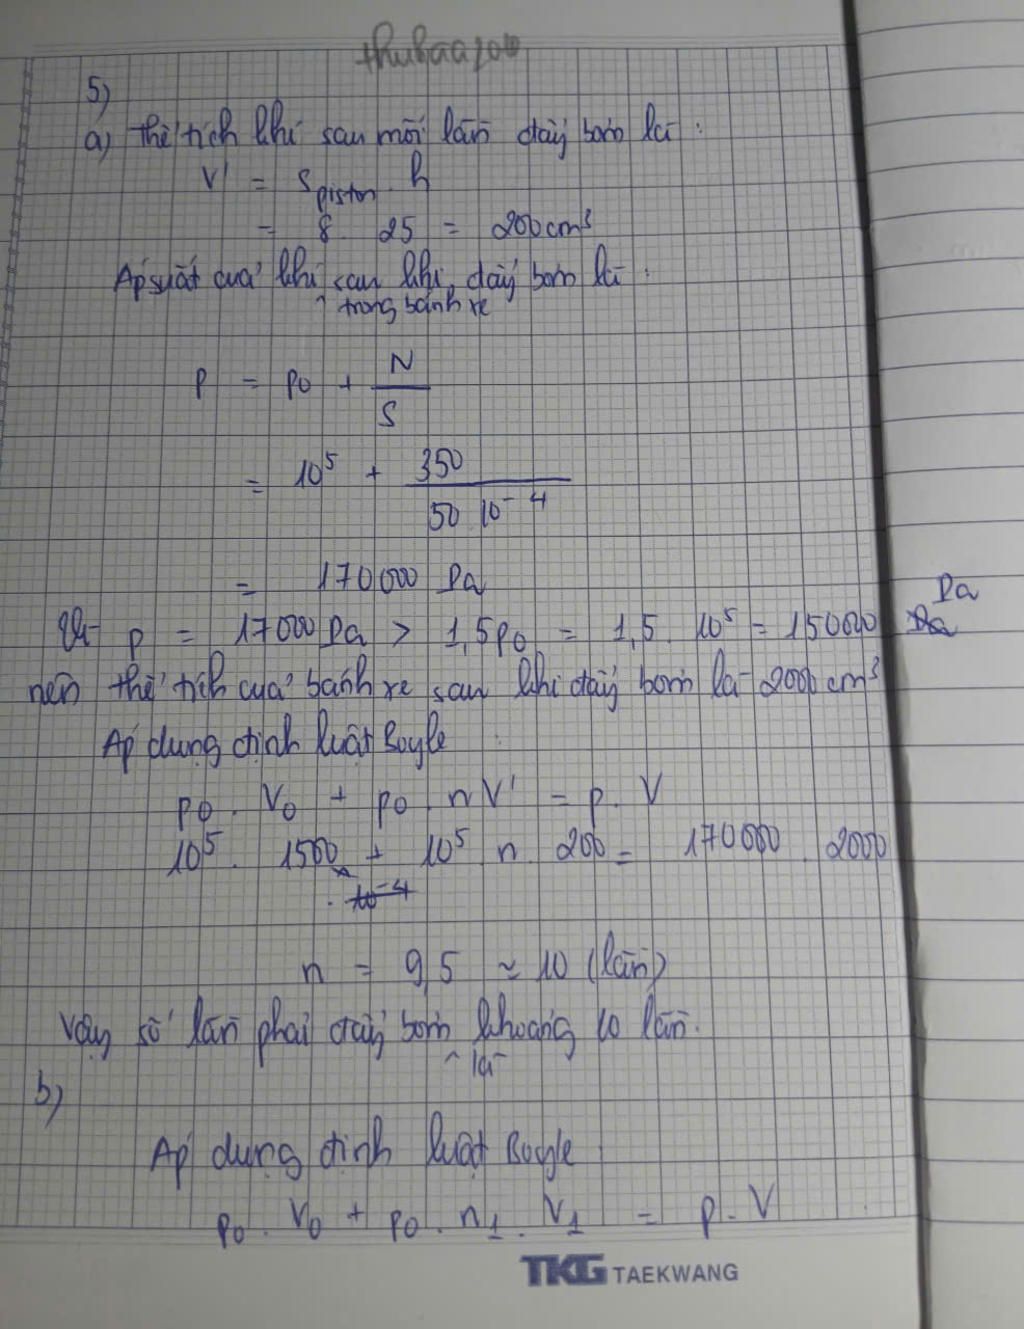 thuhaa200
5)
a) Thể tích khí sau mỗi lần đẩy bơm là :
V' = S piston . h
= 8 . 25 = 200 cm³
Áp suất của khí sau khi đẩy bơm là :
^ trong bánh xe
p = p0 + N/S
= 10⁵ + 350/(50 . 10⁻⁴)
= 170000 Pa
Pa
Vì p = 17000 Pa > 1,5p0 = 1,5 . 10⁵ = 150000
nên thể tích của bánh xe sau khi đẩy bơm là 2000 cm³
Áp dụng định luật Boyle
p0 . V0 + p0 . nV' = p . V
10⁵ . 1500 + 10⁵ . n . 200 = 170000 . 2000
n = 9,5 ≈ 10 (lần)
Vậy số lần phải đẩy bơm khoảng 10 lần.
^ là
b)
Áp dụng định luật Boyle
p0 . V0 + p0 . n1 . V1 = p . V
TKG TAEKWANG